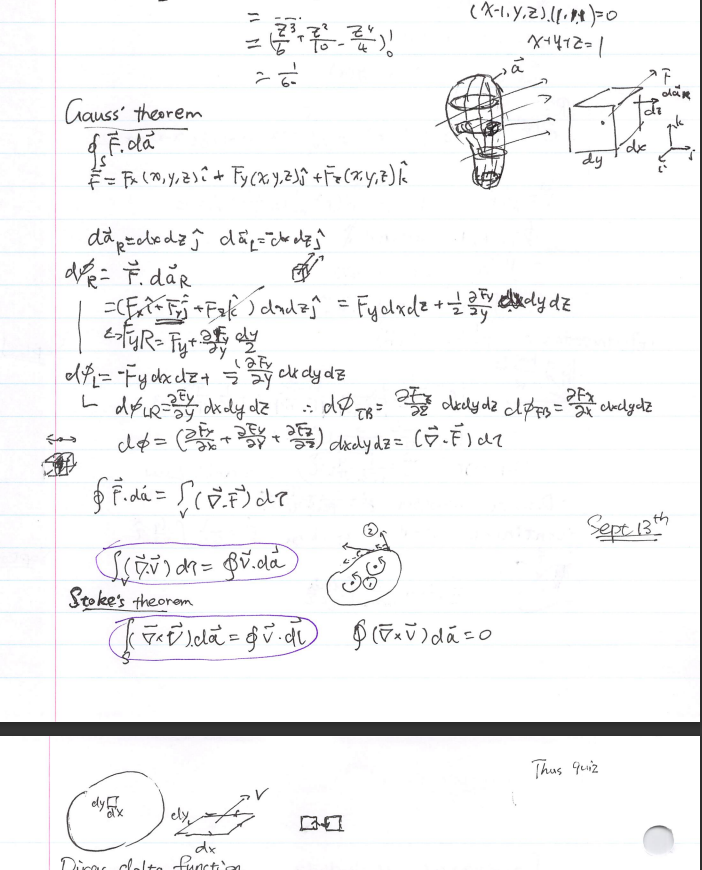 =
= (z³/6 + z²/10 - z⁴/4)₀¹
= 1/60
(x-1, y, z).(1,1,1)=0
x+y+z=1
Gauss' theorem
∮ₛ F⃗.da⃗
F⃗ = Fx(x,y,z)î + Fy(x,y,z)ĵ + Fz(x,y,z)k̂
a⃗
F⃗
da⃗R
dz
dx
dy
k
j
i
da⃗R=dxdzĵ da⃗L=-dxdzĵ
dφR = F⃗.da⃗R
=(Fxî+Fyĵ+Fzk̂)dxdzĵ = Fydxdz + 1/2 ∂Fy/∂y dxdydz
↳ FyR = Fy + ∂Fy/∂y dy/2
dφL = -Fydxdz + 1/2 ∂Fy/∂y dxdydz
dφLR = ∂Fy/∂y dxdydz ∴ dφTB = ∂Fz/∂z dxdydz dφFB = ∂Fx/∂x dxdydz
dφ = (∂Fx/∂x + ∂Fy/∂y + ∂Fz/∂z) dxdydz = (∇⃗.F⃗)dτ
∮ F⃗.da⃗ = ∫ᵥ(∇⃗.F⃗)dτ
Sept 13th
∫ᵥ(∇⃗.v⃗)dτ = ∮v⃗.da⃗
②
①
Stoke's theorem
∫ₛ(∇⃗×v⃗).da⃗ = ∮v⃗.dl⃗ ∮(∇⃗×v⃗)da⃗=0
Thus quiz
dy
dx
dy
V
dx
Dirac delta function